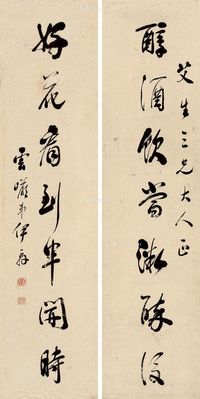 艾生三兄大人正
醇酒飲當微醉後
好花看到半開時
雲 弟伊